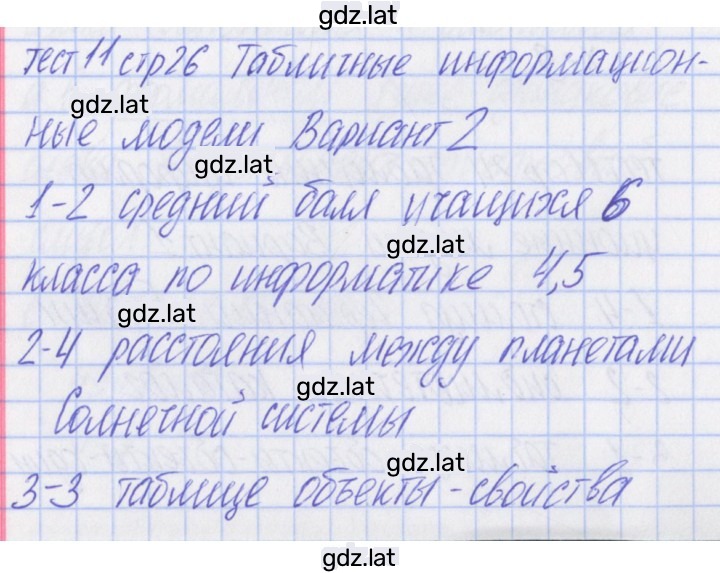 gdz.lat
тест 11 стр 26 Табличные информацион-
gdz.lat
ные модели Вариант 2
gdz.lat
1-2 средний балл учащихся 6
gdz.lat
класса по информатике 4,5
gdz.lat
2-4 расстояния между планетами
gdz.lat
Солнечной системы
gdz.lat
3-3 таблице объекты-свойства
gdz.lat